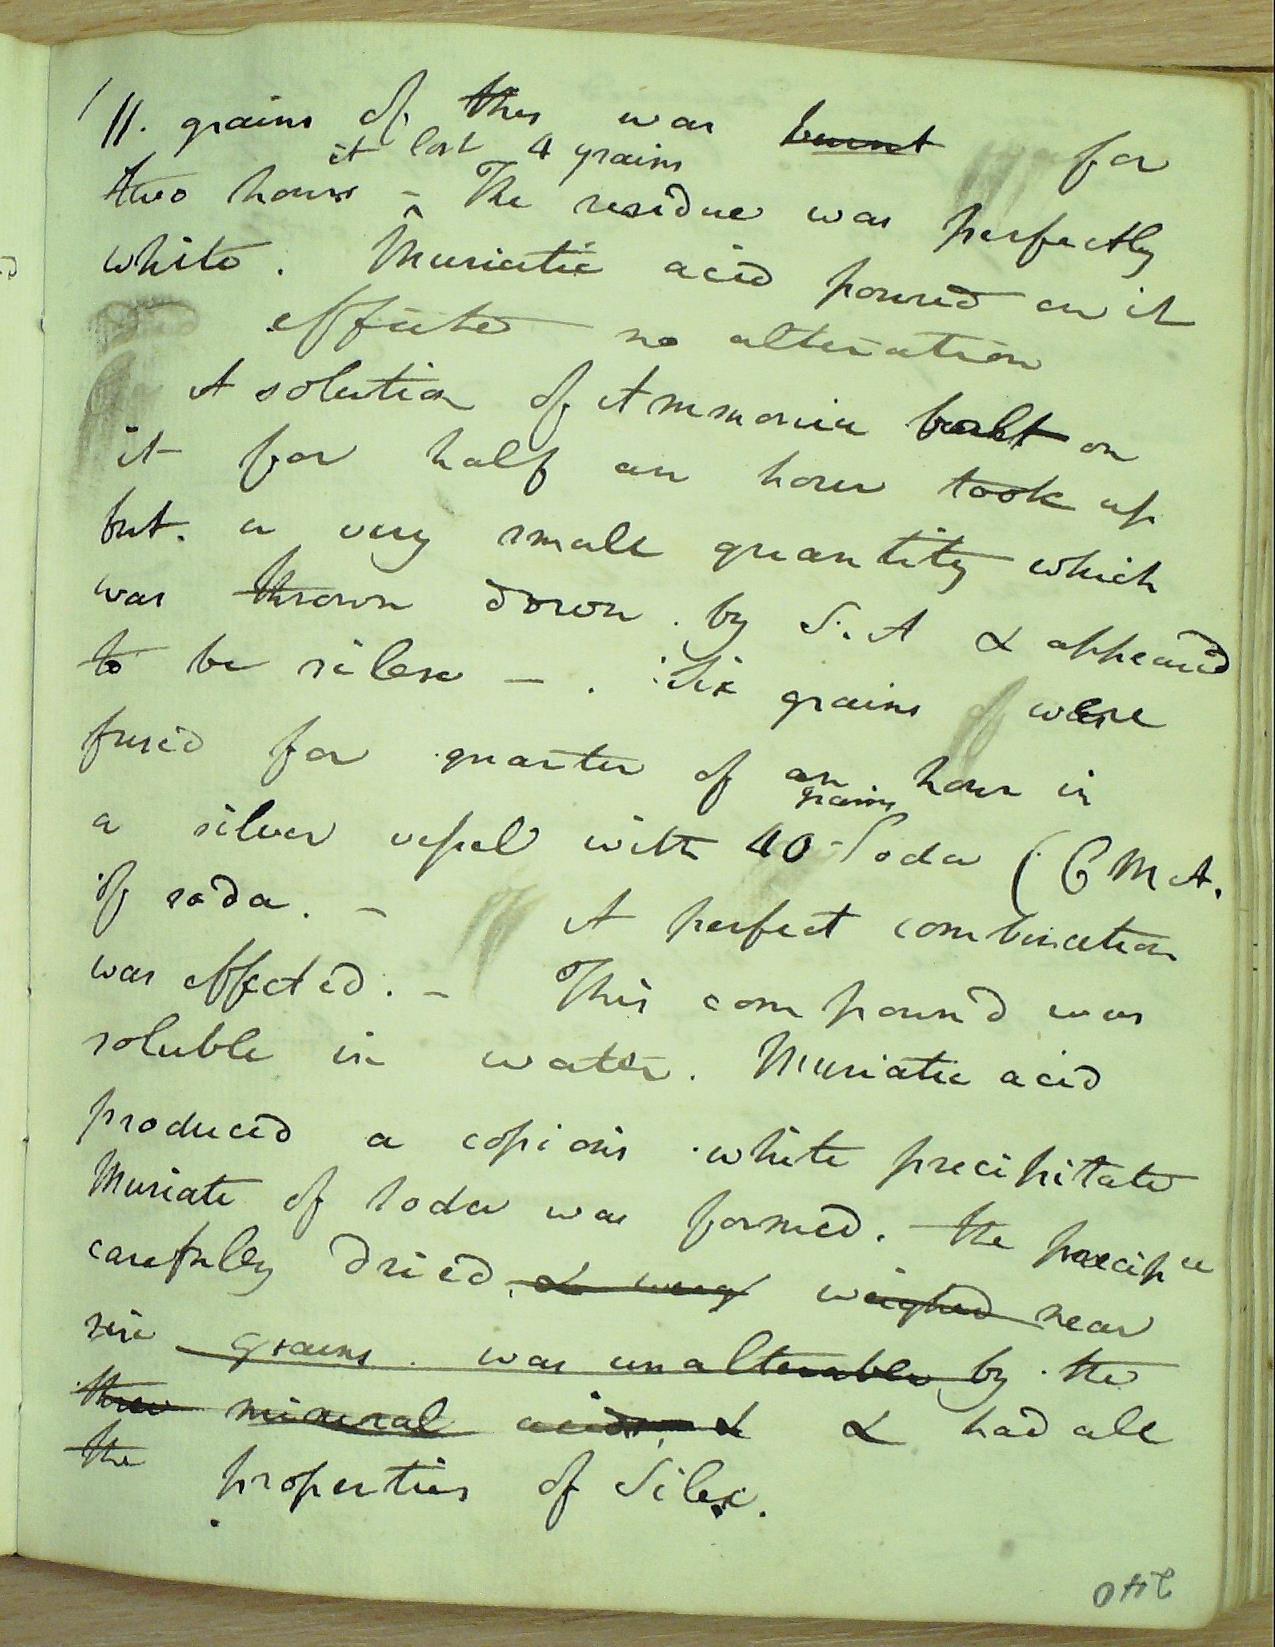 11. grains of this was burnt for
it lost 4 grains
two hours ‸ – The residue was perfectly
white. Muriatic acid poured on it
effected no alteration
A solution of Ammonia boilt on
it for half an hour took up
but a very small quantity which
was thrown down by S. A & appeared
to be silex – . Six grains of were
fused for quarter of an hour in
grains
a silver vessel with 40 Soda (C M A.
of soda. – A perfect combination
was effected. – This compound was
soluble in water. Muriatic acid
produced a copious white precipitate
Muriate of Soda was formed. – the precip
carefully dried, & weig weighed near
six grains. was unalterable by the
three mineral acids, & & had all
the properties of Silex.